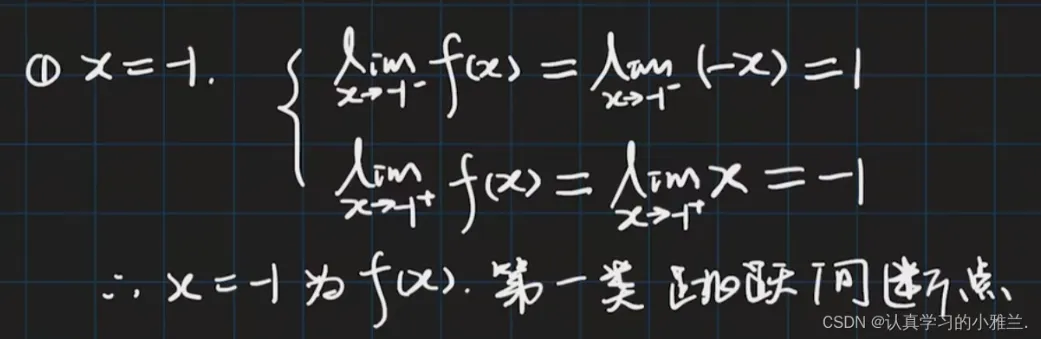 ① x=-1. { lim x→-1⁻ f(x) = lim x→-1⁻ (-x) = 1
lim x→-1⁺ f(x) = lim x→-1⁺ x = -1
∴ x=-1 为 f(x). 第一类 跳跃间断点
CSDN @认真学习的小雅兰.